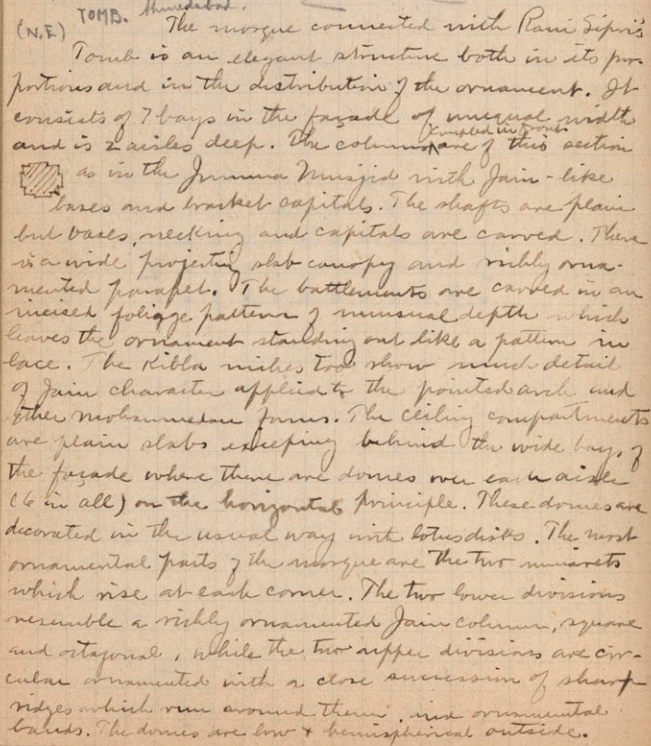 TOMB. Ahmedabad.
(N.E) The mosque connected with Rani Sipri's
Tomb is an elegant structure both in its pro-
portions and in the distribution of the ornament. It
consists of 7 bays in the façade of unequal width
and is 2 aisles deep. The columns coupled in front are of this section
as in the Jumma Musjid with Jain-like
bases and bracket capitals. The shafts are plain
but bases, necking and capitals are carved. There
is a wide projecting slab canopy and richly orna-
mented parapet. The battlements are carved in an
incised foliage pattern of unusual depth which
leaves the ornament standing out like a pattern in
lace. The Kibla niches too show much detail
of Jain character applied to the pointed arch and
other Mohammedan forms. The ceiling compartments
are plain slabs excepting behind the wide bays of
the façade where there are domes over each aisle
(6 in all) on the horizontal principle. These domes are
decorated in the usual way with lotus disks. The most
ornamental parts of the mosque are the two minarets
which rise at each corner. The two lower divisions
resemble a richly ornamented Jain column, square
and octagonal, while the two upper divisions are cir-
cular ornamented with a close succession of sharp
ridges which run around them, and ornamental
bands. The domes are low + hemispherical outside.